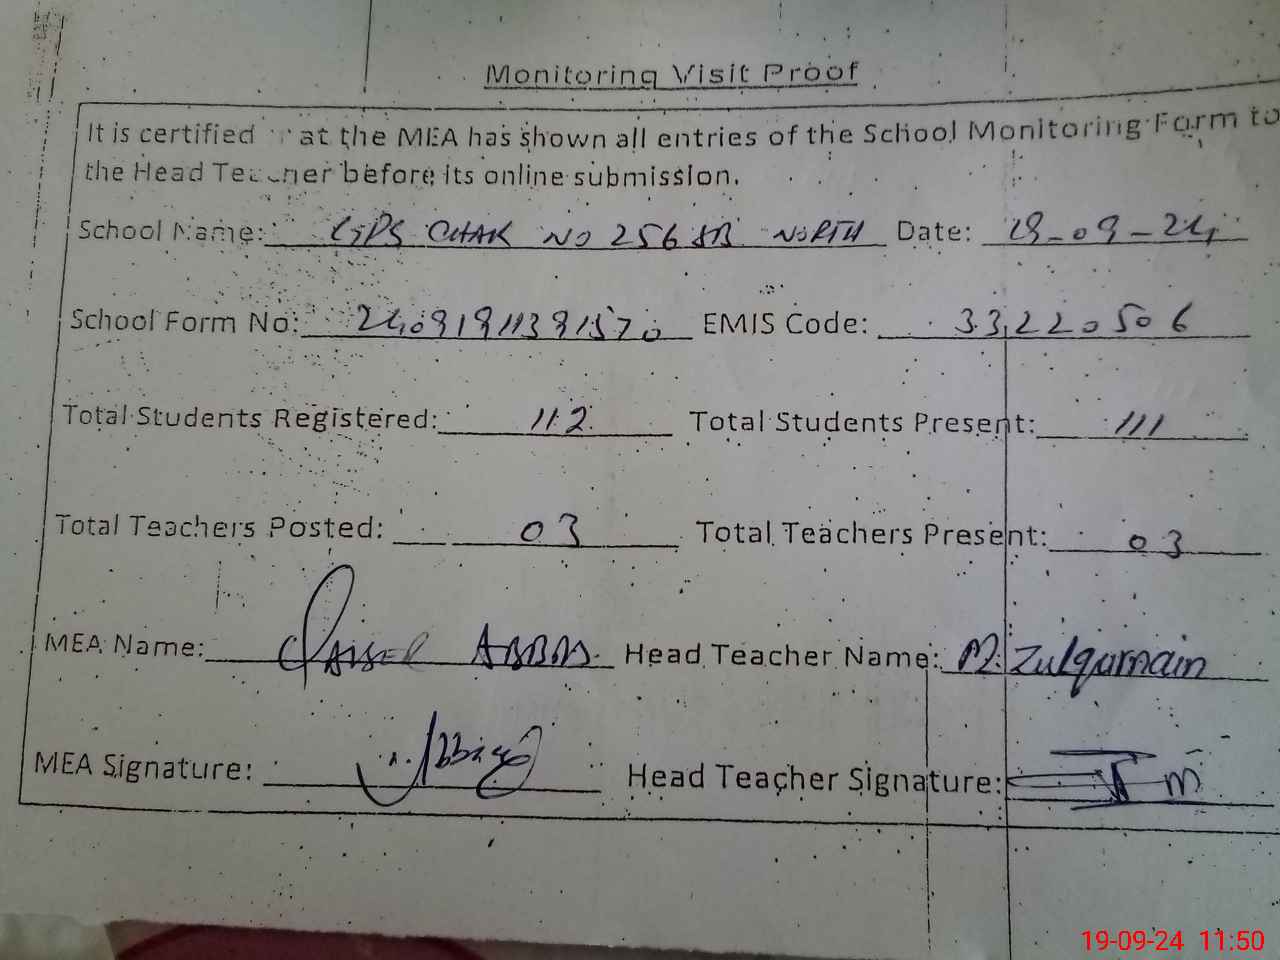 Monitoring Visit Proof
It is certified at the MEA has shown all entries of the School Monitoring Form to
the Head Teacher before its online submission.
School Name: GPS CHAK NO 256 JB NORTH Date: 19-09-24
School Form No: 24091911391570 EMIS Code: 33220506
Total Students Registered: 112 Total Students Present: 111
Total Teachers Posted: 03 Total Teachers Present: 03
MEA Name: QAISER ABBAS Head Teacher Name: M. Zulqarnain
MEA Signature: Head Teacher Signature:
19-09-24 11:50